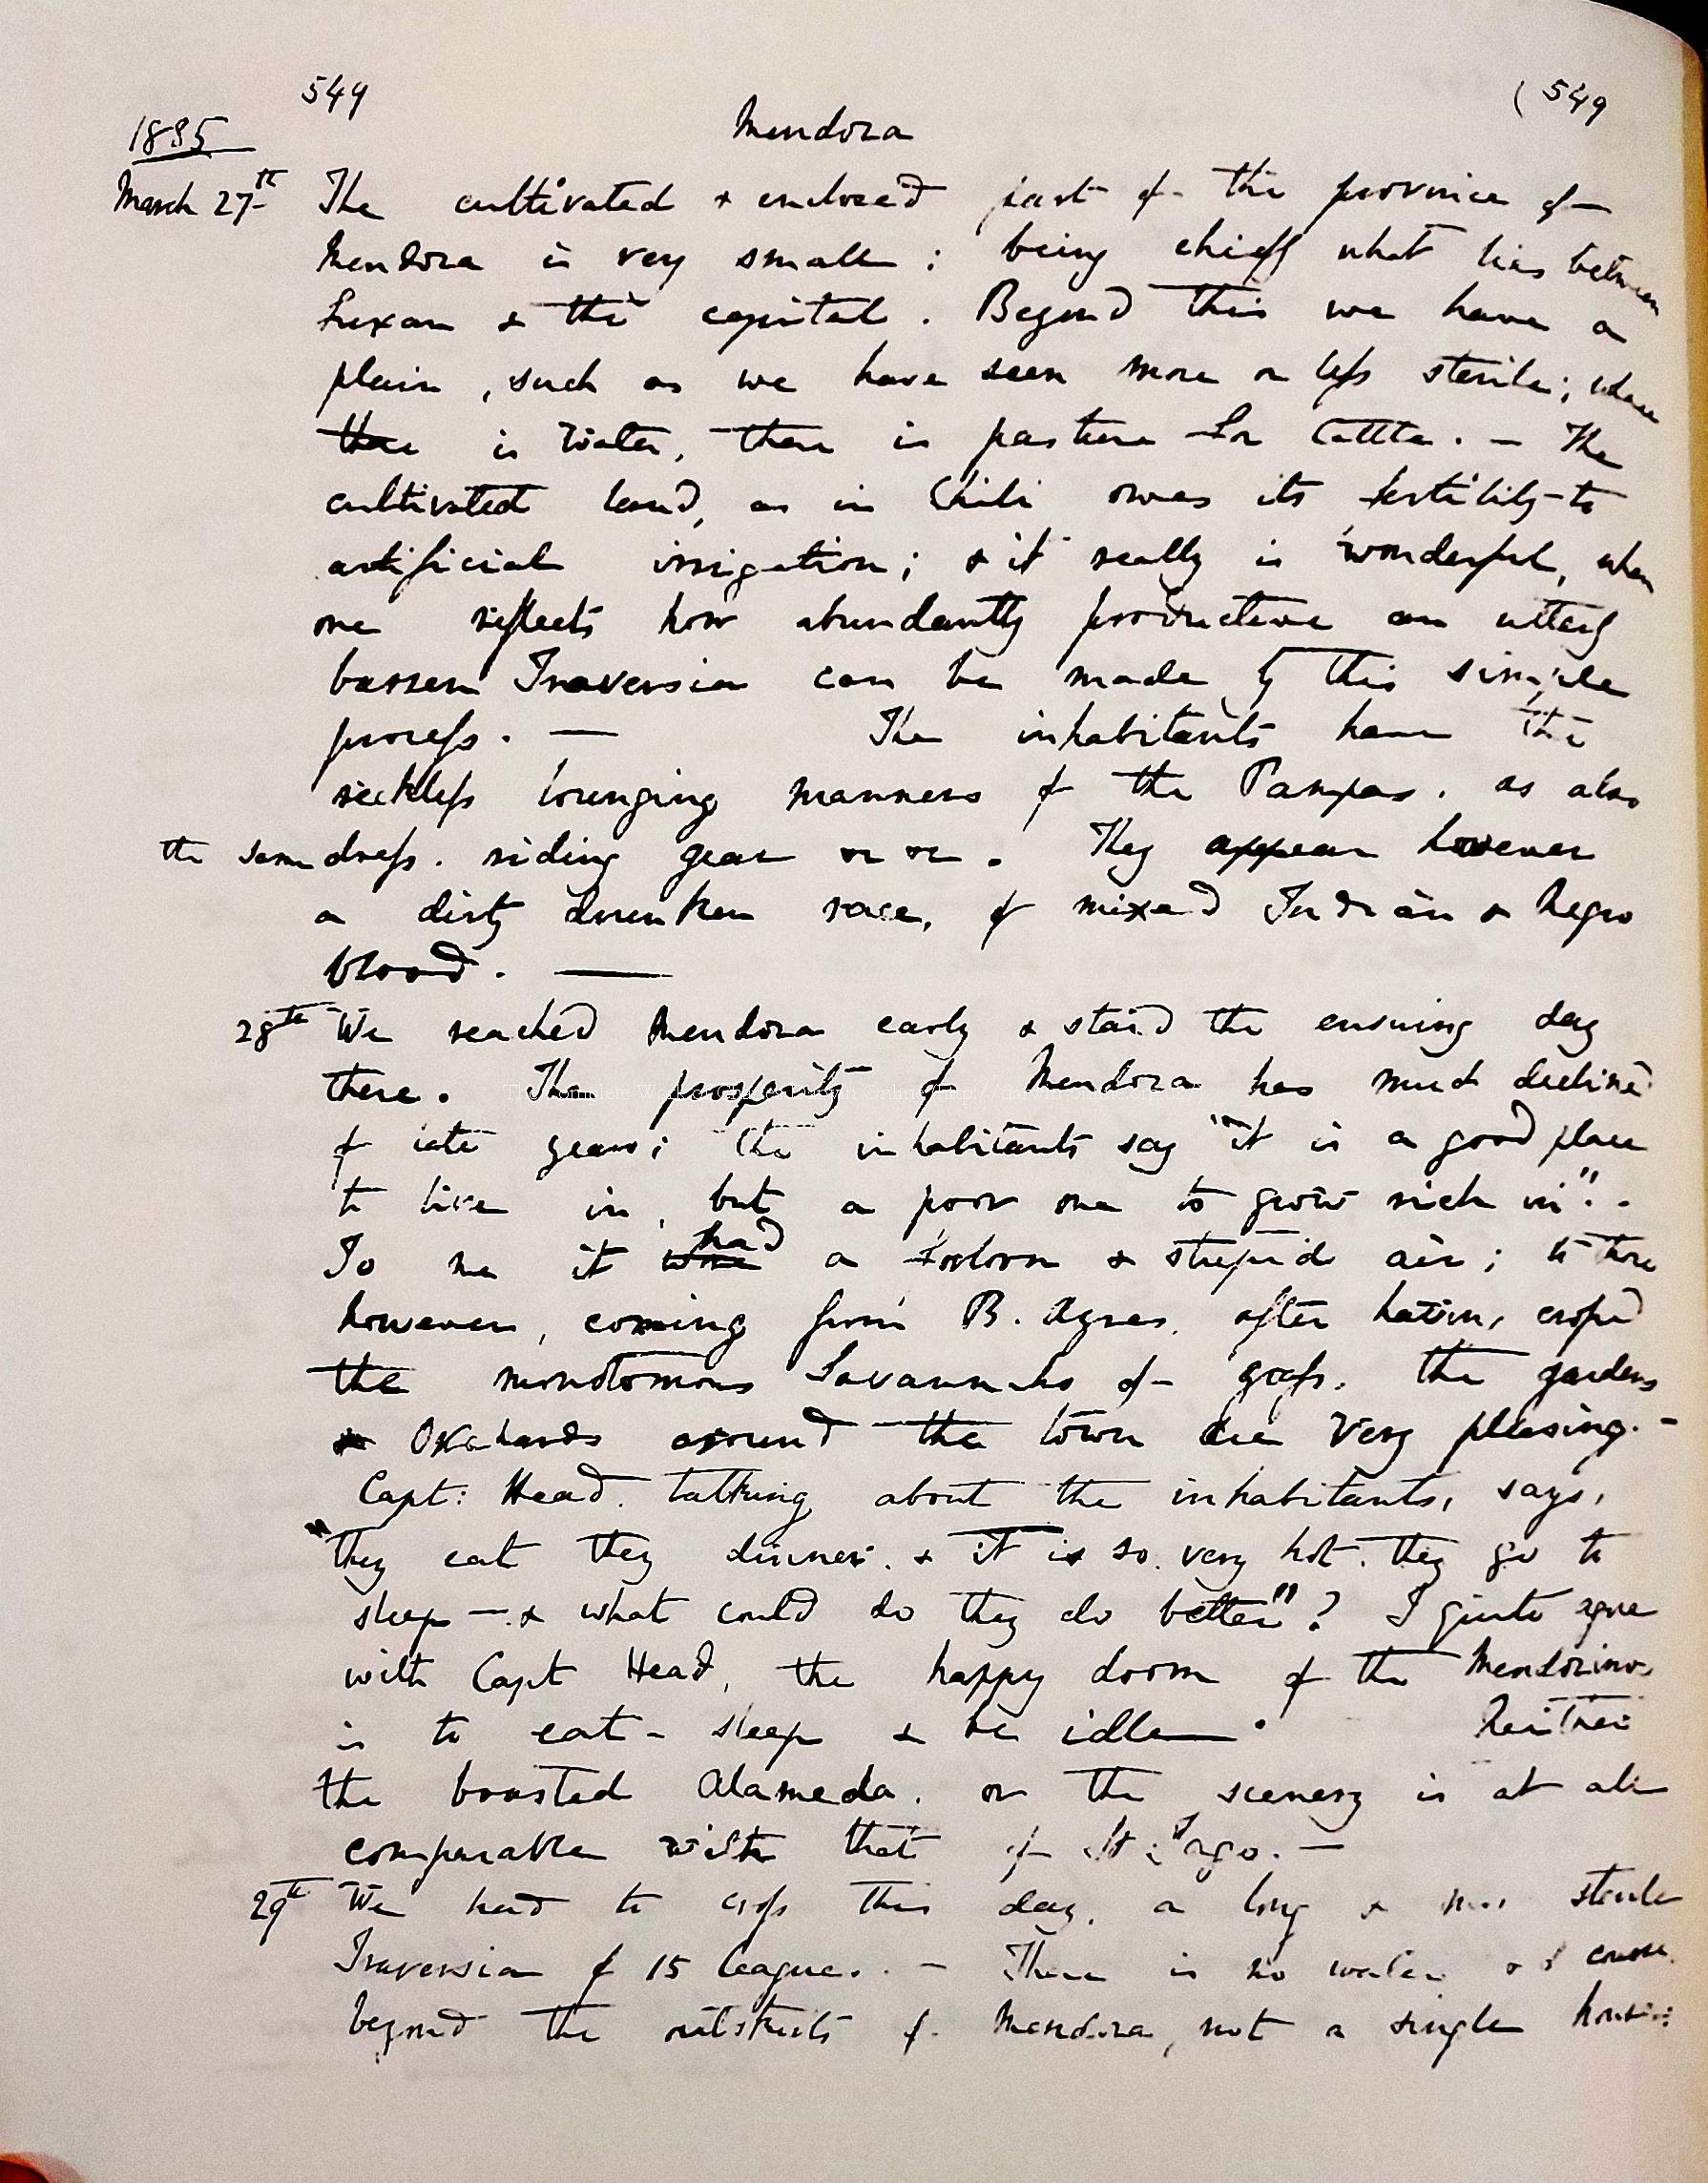 549
(549
1835
Mendoza
March 27th The cultivated & enclosed part of the province of
Mendoza is very small; being chiefly what lies between
Luxan & the capital. Beyond this we have a
plain, such as we have seen more or less sterile; where
there is water, there is pasture for Cattle. — The
cultivated land, as in Chili owes its fertility to
artificial irrigation; & it really is wonderful, when
one reflects how abundantly productive an utterly
barren Traversia can be made by this simple
process. — The inhabitants have the
reckless lounging manners of the Pampas, as also
the same dress, riding gear &c &c. They appear however
a dirty drunken race, of mixed Indian & Negro
blood. —
28th We reached Mendoza early & staid the ensuing day
there. The prosperity of Mendoza has much declined
of late years; the inhabitants say "it is a good place
to live in, but a poor one to grow rich in". -
To me it had a forlorn & stupid air; to those
however, coming from B. Ayres, after having crossed
the monotomous Savannahs of grass, the gardens
& Orchards around the town are very pleasing. -
Capt: Head, talking about the inhabitants, says,
"They eat they dinner, & it is so very hot, they go to
sleep — & what could do they do better"? I quite agree
with Capt Head, the happy doom of the Mendozinos
is to eat - sleep & be idle. Neither
the boasted Alameda, or the scenery is at all
comparable with that of St Jago. —
29th We had to cross this day, a long & most sterile
Traversia of 15 leagues. - There is no water & of course
beyond the outskirts of Mendoza, not a single house: